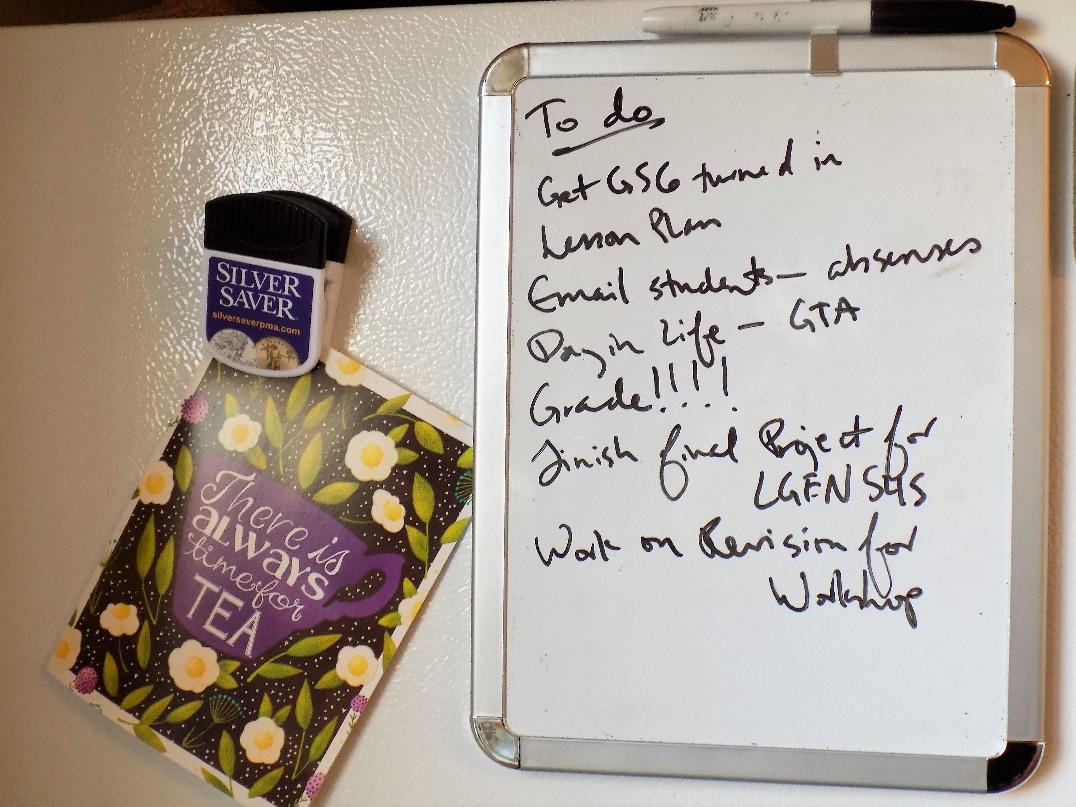 SILVER
SAVER
silversaverpma.com
There is
ALWAYS
time for
TEA
To do
Get GSG turned in
Lesson Plan
Email students - absenses
Day in Life - GTA
Grade!!!!
Finish final Project for
LGEN SHS
Work on Revision for
Workshop